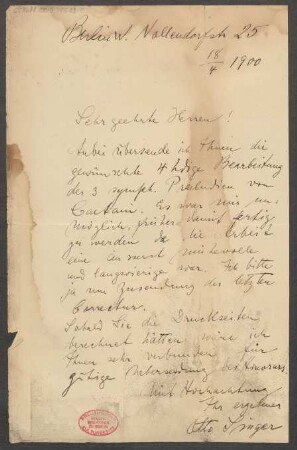 Berlin W. Nollendorfstr 25
18/4 1900
Sehr geehrte Herren!
Anbei übersende ich Ihnen die
gewünschte 4 hdige Bearbeitung
der 3 symph. Praeludien von
Caetani. Es war mir un-
möglich, früher damit fertig
zu werden da die Arbeit
eine äusserst mühevolle
und langwierige war. Ich bitte
ja um Zusendung der letzten
Correctur.
Sobald Sie die Druckseiten
berechnet hätten, wäre ich
Ihnen sehr verbunden für
gütige Uebersendung des Honorars.
Mit Hochachtung
Ihr ergebener
Otto Singer